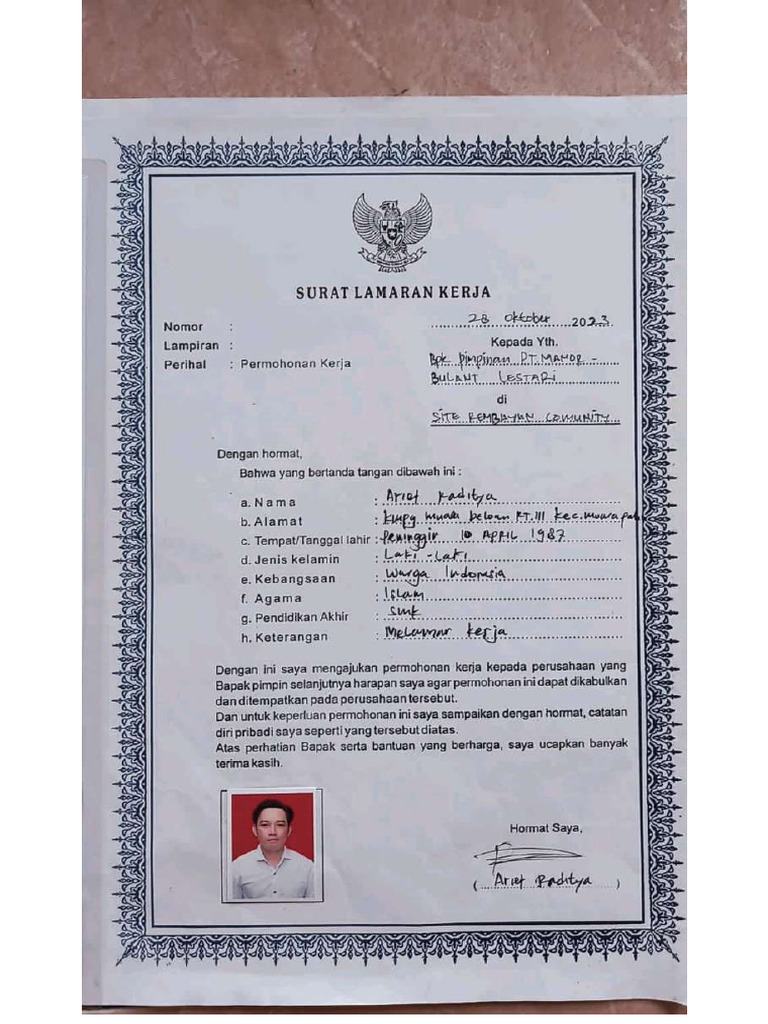 SURAT LAMARAN KERJA
28 Oktober 2023
Nomor :
Lampiran :
Perihal : Permohonan Kerja
Kepada Yth.
Bpk Pimpinan PT. MANOR -
BULANT LESTARI
di
SITE REMBAYAN COMUNITY
Dengan hormat,
Bahwa yang bertanda tangan dibawah ini :
a. Nama : Arief Raditya
b. Alamat : muara beloan RT. III kec. muara
c. Tempat/Tanggal lahir : Peninggir 10 APRIL 1987
d. Jenis kelamin : Laki - Laki
e. Kebangsaan : Warga Indonesia
f. Agama : Islam
g. Pendidikan Akhir : SMK
h. Keterangan : Melamar kerja
Dengan ini saya mengajukan permohonan kerja kepada perusahaan yang
Bapak pimpin selanjutnya harapan saya agar permohonan ini dapat dikabulkan
dan ditempatkan pada perusahaan tersebut.
Dan untuk keperluan permohonan ini saya sampaikan dengan hormat, catatan
diri pribadi saya seperti yang tersebut diatas.
Atas perhatian Bapak serta bantuan yang berharga, saya ucapkan banyak
terima kasih.
Hormat Saya,
( Arief Raditya )